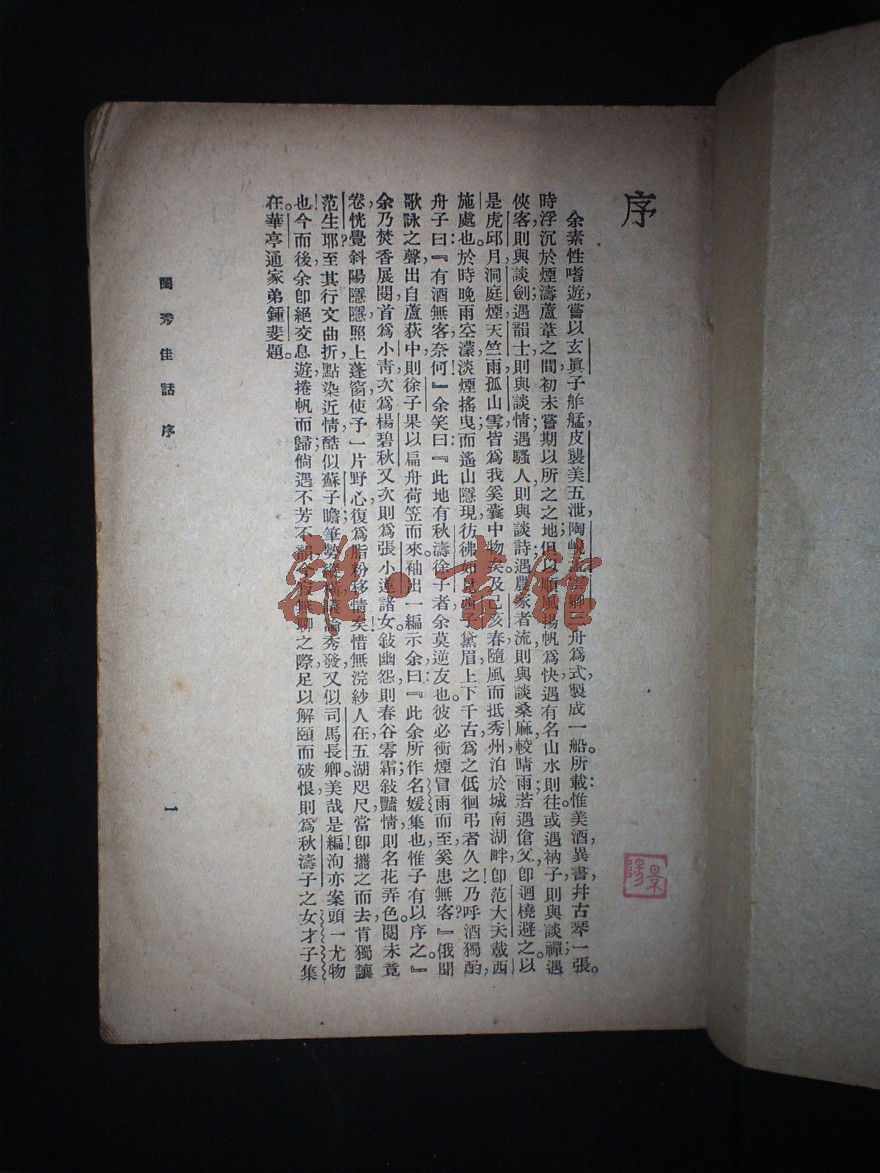 序
余素性嗜遊，嘗以玄眞子舴艋，皮襲美五泄，陶峴舟爲式，製成一船。所載：惟美酒，異書，幷古琴一張。
時浮沉於煙濤蘆葦之間，初未嘗期以所之之地，但以順風揚帆爲快。遇有名山水則往，或遇衲子則與談禪；遇
俠客則與談劍；遇韻士則與談情；遇騷人則與談詩；遇農家者流，則與談桑麻，較晴雨；若遇傖父，卽迴橈避之。以
是虎邱月，洞庭煙，天竺雨，孤山雪，皆爲我奚囊中物矣。及己亥春，隨風而抵秀州，泊於城南湖畔，卽范大夫戴西
施處也。於時晚雨空濛，淡煙搖曳；而遙山隱現，彷彿如見西子黛眉，上下千古，爲之低徊弔者久之！乃呼酒獨酌，
舟子曰：『有酒無客奈何！』余笑曰：『此地有秋濤徐子者，余莫逆友也。彼必衝煙冒雨而至，奚患無客？』俄聞
歌詠之聲，出自蘆荻中，則徐子果以扁舟荷笠而來。袖出一編示余曰：『此余所作名媛集也，惟子有以序之。』
余乃焚香展閱，首爲小靑，次爲楊碧秋，又次則爲張小蓮諸女，敍幽怨，則春谷零霜；敍豔情，則名花弄色。閱未竟
卷，恍覺斜陽隱隱，照上蓬窗，使予一片野心，復爲脂粉移情矣！惜無浣紗人在，五湖咫尺，當卽攜之而去，肯獨讓
范生耶？至其行文曲折，點染近情，酷似蘇子瞻；筆勢議論秀發，又似司馬長卿。美哉是編！洵亦案頭一尤物
也！今而後，余卽絕交息遊，捲帆而歸；倘遇不芳不韻，令君無聊之際，足以解頤而破恨，則爲秋濤子之女才子集
在。華亭通家弟鍾斐題。
閨秀佳話　序
一
景陽
雜·書館